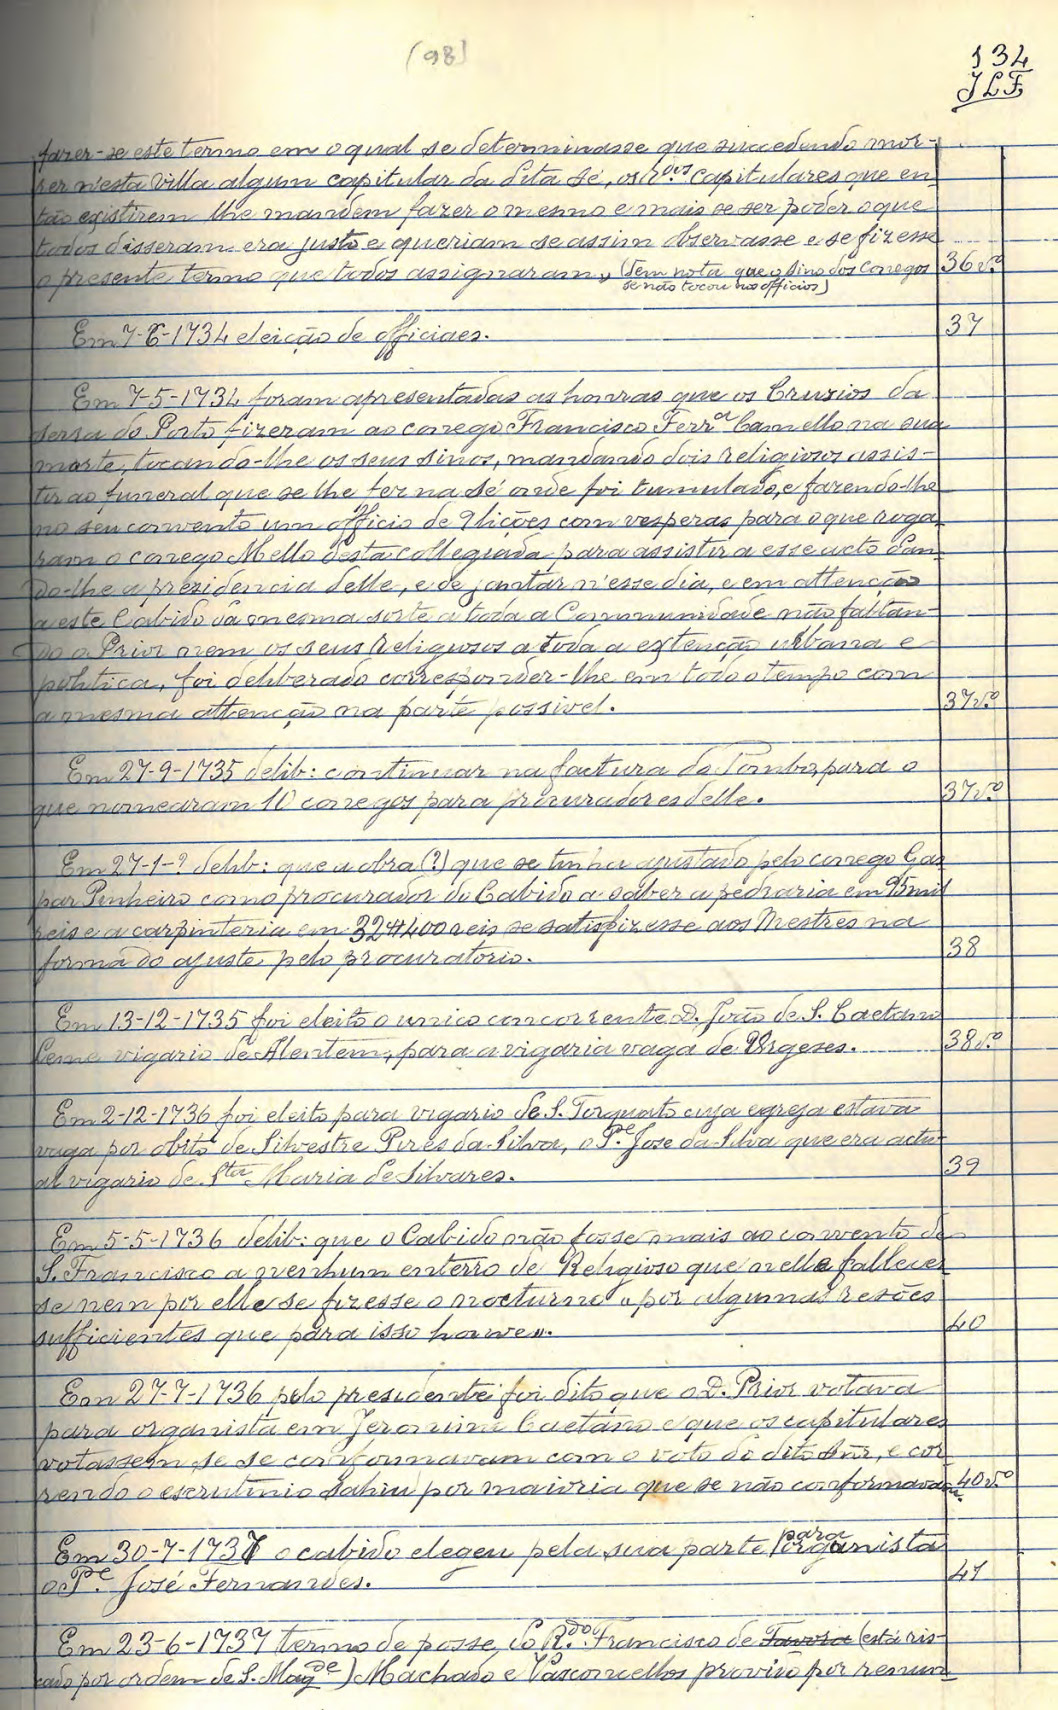 (98)
134
JLF
fazer-se este termo em o qual se determinasse que succedendo mor-
rer n'esta Villa algum capitular da dita Sé, os R.dos Capitulares que en-
tão existirem lhe mandem fazer o mesmo e mais se ser poder o que
todos disseram era justo e queriam se assim observasse e se fizesse
o presente termo que todos assignaram, (Tem nota que o sino dos conegos
se não tocou nos officios) 36v.º
Em 7-6-1734 eleição de officiaes. 37
Em 7-5-1734 foram apresentadas as honras que os Cruzios da
serra do Porto fizeram ao conego Francisco Ferr.a Camello na sua
morte, tocando-lhe os seus sinos, mandando dois religiosos assis-
tir ao funeral que se lhe fez na Sé onde foi tumulado, e fazendo-lhe
no seu convento um officio de 9 lições com vesperas para o que roga-
ram o conego Mello desta collegiada para assistir a esse acto dan-
do-lhe a presidencia delle, e de jantar n'esse dia, e em attenção
a este Cabido da mesma sorte a toda a Communidade não faltan-
do o Prior nem os seus Religiosos a toda a extenção urbana e
politica, foi deliberado corresponder-lhe em todo o tempo com
a mesma attenção na parte possivel. 37v.º
Em 27-9-1735 delib: continuar na factura do Tombo para o
que nomearam 10 conegos para procuradores delle. 37v.º
Em 27-1-? delib: que a obra (?) que se tinha ajustado pelo conego Gas-
par Pinheiro como procurador do Cabido a saber a pedraria em 95 mil
reis e a carpinteria em 32#400 reis se satisfizesse aos Mestres na
forma do ajuste pelo procuratorio. 38
Em 13-12-1735 foi eleito o unico concorrente D. João de S. Caetano
Leme vigario de Alentem, para a vigaria vaga de Urgeses. 38v.º
Em 2-12-1736 foi eleito para vigario de S. Torquato cuja egreja estava
vaga por obito de Silvestre Pires da Silva, o P.e José da Silva que era actu-
al vigario de S.ta Maria de Silvares. 39
Em 5-5-1736 delib: que o Cabido não fosse mais ao convento de
S. Francisco a nenhum enterro de Religioso que nelle falleces-
se nem por elle se fizesse o nocturno "por algumas resões
sufficientes que para isso houve". 40
Em 27-7-1736 pelo presidente foi dito que o D. Prior votava
para organista em Jeronimo Caetano e que os capitulares
votassem se se conformavam com o voto do dito Snr, e cor-
rendo o escrutinio sahiu por maioria que se não conformavam. 40v.º
Em 30-7-1737 o cabido elegeu pela sua parte para organista
o P.e José Fernandes. 41
Em 23-6-1737 termo de posse do R.do Francisco de Tavora (está ris-
cado por ordem de S. Mag.de) Machado e Vasconcellos provido por renun-